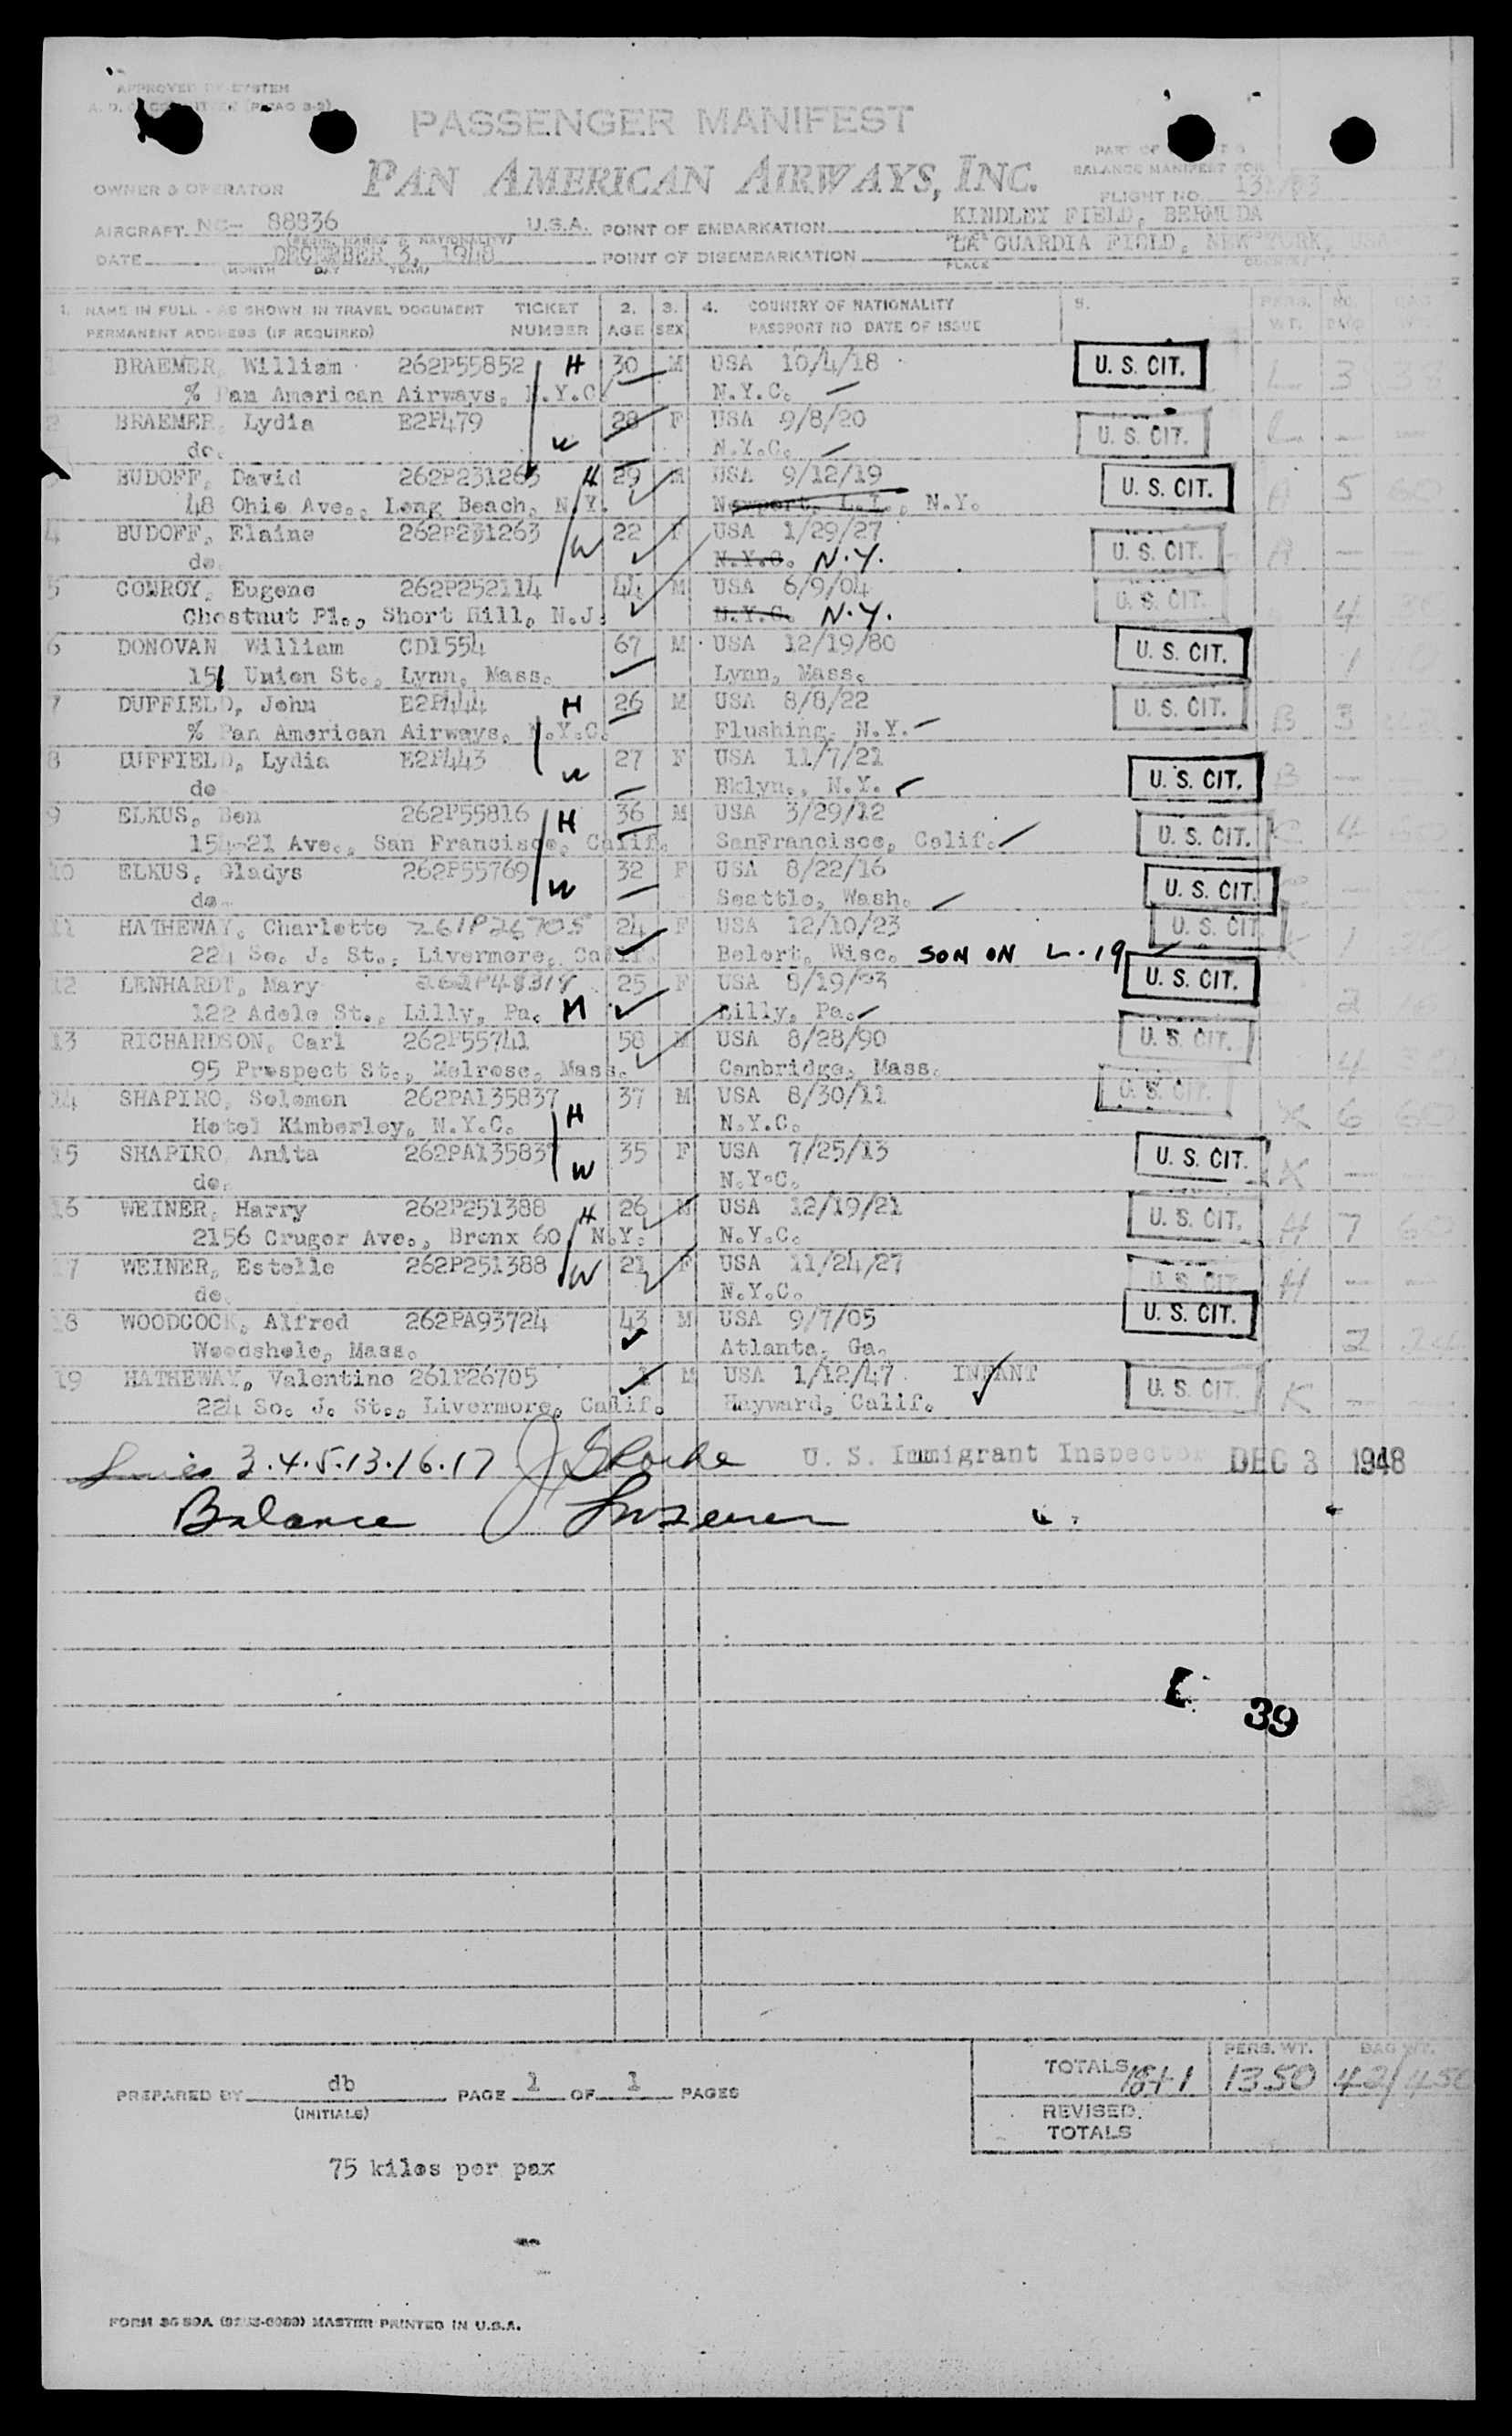 APPROVED BY SYSTEM
PASSENGER MANIFEST
PAN AMERICAN AIRWAYS, INC.
PART OF
BALANCE MANIFEST FOR
FLIGHT NO.
OWNER & OPERATOR
AIRCRAFT NC- 88836 U.S.A. POINT OF EMBARKATION KINDLEY FIELD, BERMUDA
DATE DECEMBER 3, 1948 POINT OF DISEMBARKATION LA GUARDIA FIELD, NEW YORK, USA
(MONTH DAY YEAR) PLACE
1. NAME IN FULL - AS SHOWN IN TRAVEL DOCUMENT TICKET 2. 3. 4. COUNTRY OF NATIONALITY 5. PERS. NO. BAG
PERMANENT ADDRESS (IF REQUIRED) NUMBER AGE SEX PASSPORT NO DATE OF ISSUE WT. BAGS WT.
1 BRAEMER, William 262P55852 H 30 M USA 10/4/18 U. S. CIT. L 3
% Pan American Airways, N.Y.C. N.Y.C.
2 BRAEMER, Lydia E2P479 W 28 F USA 9/8/20 U. S. CIT. L — —
do. N.Y.C.
3 BUDOFF, David 262P231263 H 29 M USA 9/12/19 U. S. CIT. A 5 60
48 Ohio Ave., Long Beach, N.Y. Newport, L.I., N.Y.
4 BUDOFF, Elaine 262P231263 W 22 F USA 1/29/27 U. S. CIT. A — —
do N.Y.C. N.Y.
5 CONROY, Eugene 262P252114 44 M USA 6/9/04 U. S. CIT. 4
Chestnut Pl., Short Hill, N.J. N.Y.C. N.Y.
6 DONOVAN William CD1554 67 M USA 12/19/80 U. S. CIT. 1
151 Union St., Lynn, Mass. Lynn, Mass.
7 DUFFIELD, John E2P444 H 26 M USA 8/8/22 U. S. CIT. B 3
% Pan American Airways, N.Y.C. Flushing, N.Y.
8 DUFFIELD, Lydia E2P443 W 27 F USA 11/7/21 U. S. CIT. B — —
do Bklyn., N.Y.
9 ELKUS, Ben 262P55816 H 36 M USA 3/29/12 U. S. CIT. C 4 60
154-21 Ave., San Francisco, Calif. SanFrancisco, Calif.
10 ELKUS, Gladys 262P55769 W 32 F USA 8/22/16 U. S. CIT. C — —
do Seattle, Wash.
11 HATHEWAY, Charlotte 261P26705 24 F USA 12/10/23 U. S. CIT. K 1
224 So. J. St., Livermore, Calif. Belort, Wisc. SON ON L.19
12 LENHARDT, Mary 25 F USA 8/19/23 U. S. CIT. 2
122 Adele St., Lilly, Pa. M Lilly, Pa.
13 RICHARDSON, Carl 262P55741 58 M USA 8/28/90 U. S. CIT. 4
95 Prospect St., Melrose, Mass. Cambridge, Mass.
14 SHAPIRO, Solomon 262PA135837 H 37 M USA 8/30/11 U. S. CIT. X 6 60
Hotel Kimberley, N.Y.C. N.Y.C.
15 SHAPIRO Anita 262PA135837 W 35 F USA 7/25/13 U. S. CIT. X — —
do. N.Y.C.
16 WEINER, Harry 262P251388 H 26 M USA 12/19/21 U. S. CIT. H 7 60
2156 Cruger Ave., Bronx 60, N.Y. N.Y.C.
17 WEINER, Estelle 262P251388 W 21 F USA 11/24/27 U. S. CIT. H — —
do. N.Y.C.
18 WOODCOCK, Alfred 262PA93724 43 M USA 9/7/05 U. S. CIT. 2
Woodshole, Mass. Atlanta, Ga.
19 HATHEWAY, Valentine 261P26705 1 M USA 1/12/47 INFANT U. S. CIT. K — —
224 So. J. St., Livermore, Calif. Hayward, Calif.
Lines 3.4.5.13.16.17 U. S. Immigrant Inspector DEC 3 1948
Balance " "
39
TOTALS 18+1 PERS. WT. 1350 BAG WT. 42/450
PREPARED BY db PAGE 1 OF 1 PAGES
(INITIALS)
REVISED
TOTALS
75 kilos per pax
MASTER PRINTED IN U.S.A.